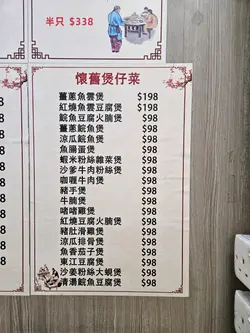 半只 $338
懷舊煲仔菜
薑蔥魚雲煲 $198
紅燒魚雲豆腐煲 $198
鯇魚豆腐火腩煲 $98
薑蔥鯇魚煲 $98
涼瓜鯇魚煲 $98
魚腸蛋煲 $98
蝦米粉絲雜菜煲 $98
沙爹牛肉粉絲煲 $98
咖喱牛肉煲 $98
豬手煲 $98
牛腩煲 $98
啫啫雞煲 $98
紅燒豆腐火腩煲 $98
豬肚滑雞煲 $98
涼瓜排骨煲 $98
魚香茄子煲 $98
東江豆腐煲 $98
沙姜粉絲大蜆煲 $98
清湯鯇魚豆腐煲 $98